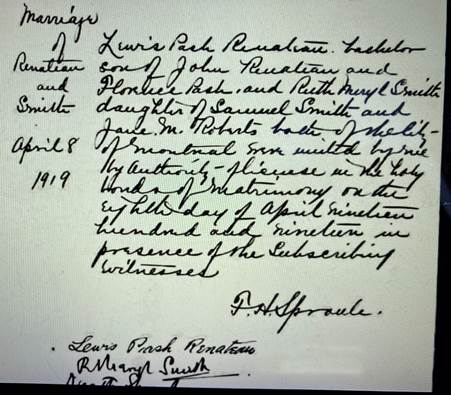 Marriage
of
Renateau
and
Smith
April 8
1919
Lewis Pash Renateau. bachelor
son of John Renateau and
Florence Pash and Ruth Meryl Smith
daughter of Samuel Smith and
Jane M. Roberts both of the City
of Montreal were united by me
by authority of license in the holy
bonds of matrimony on the
Eighth day of April Nineteen
hundred and nineteen in
presence of the Subscribing
Witnesses
F. H. Sproule.
Lewis Pash Renateau
R Meryl Smith